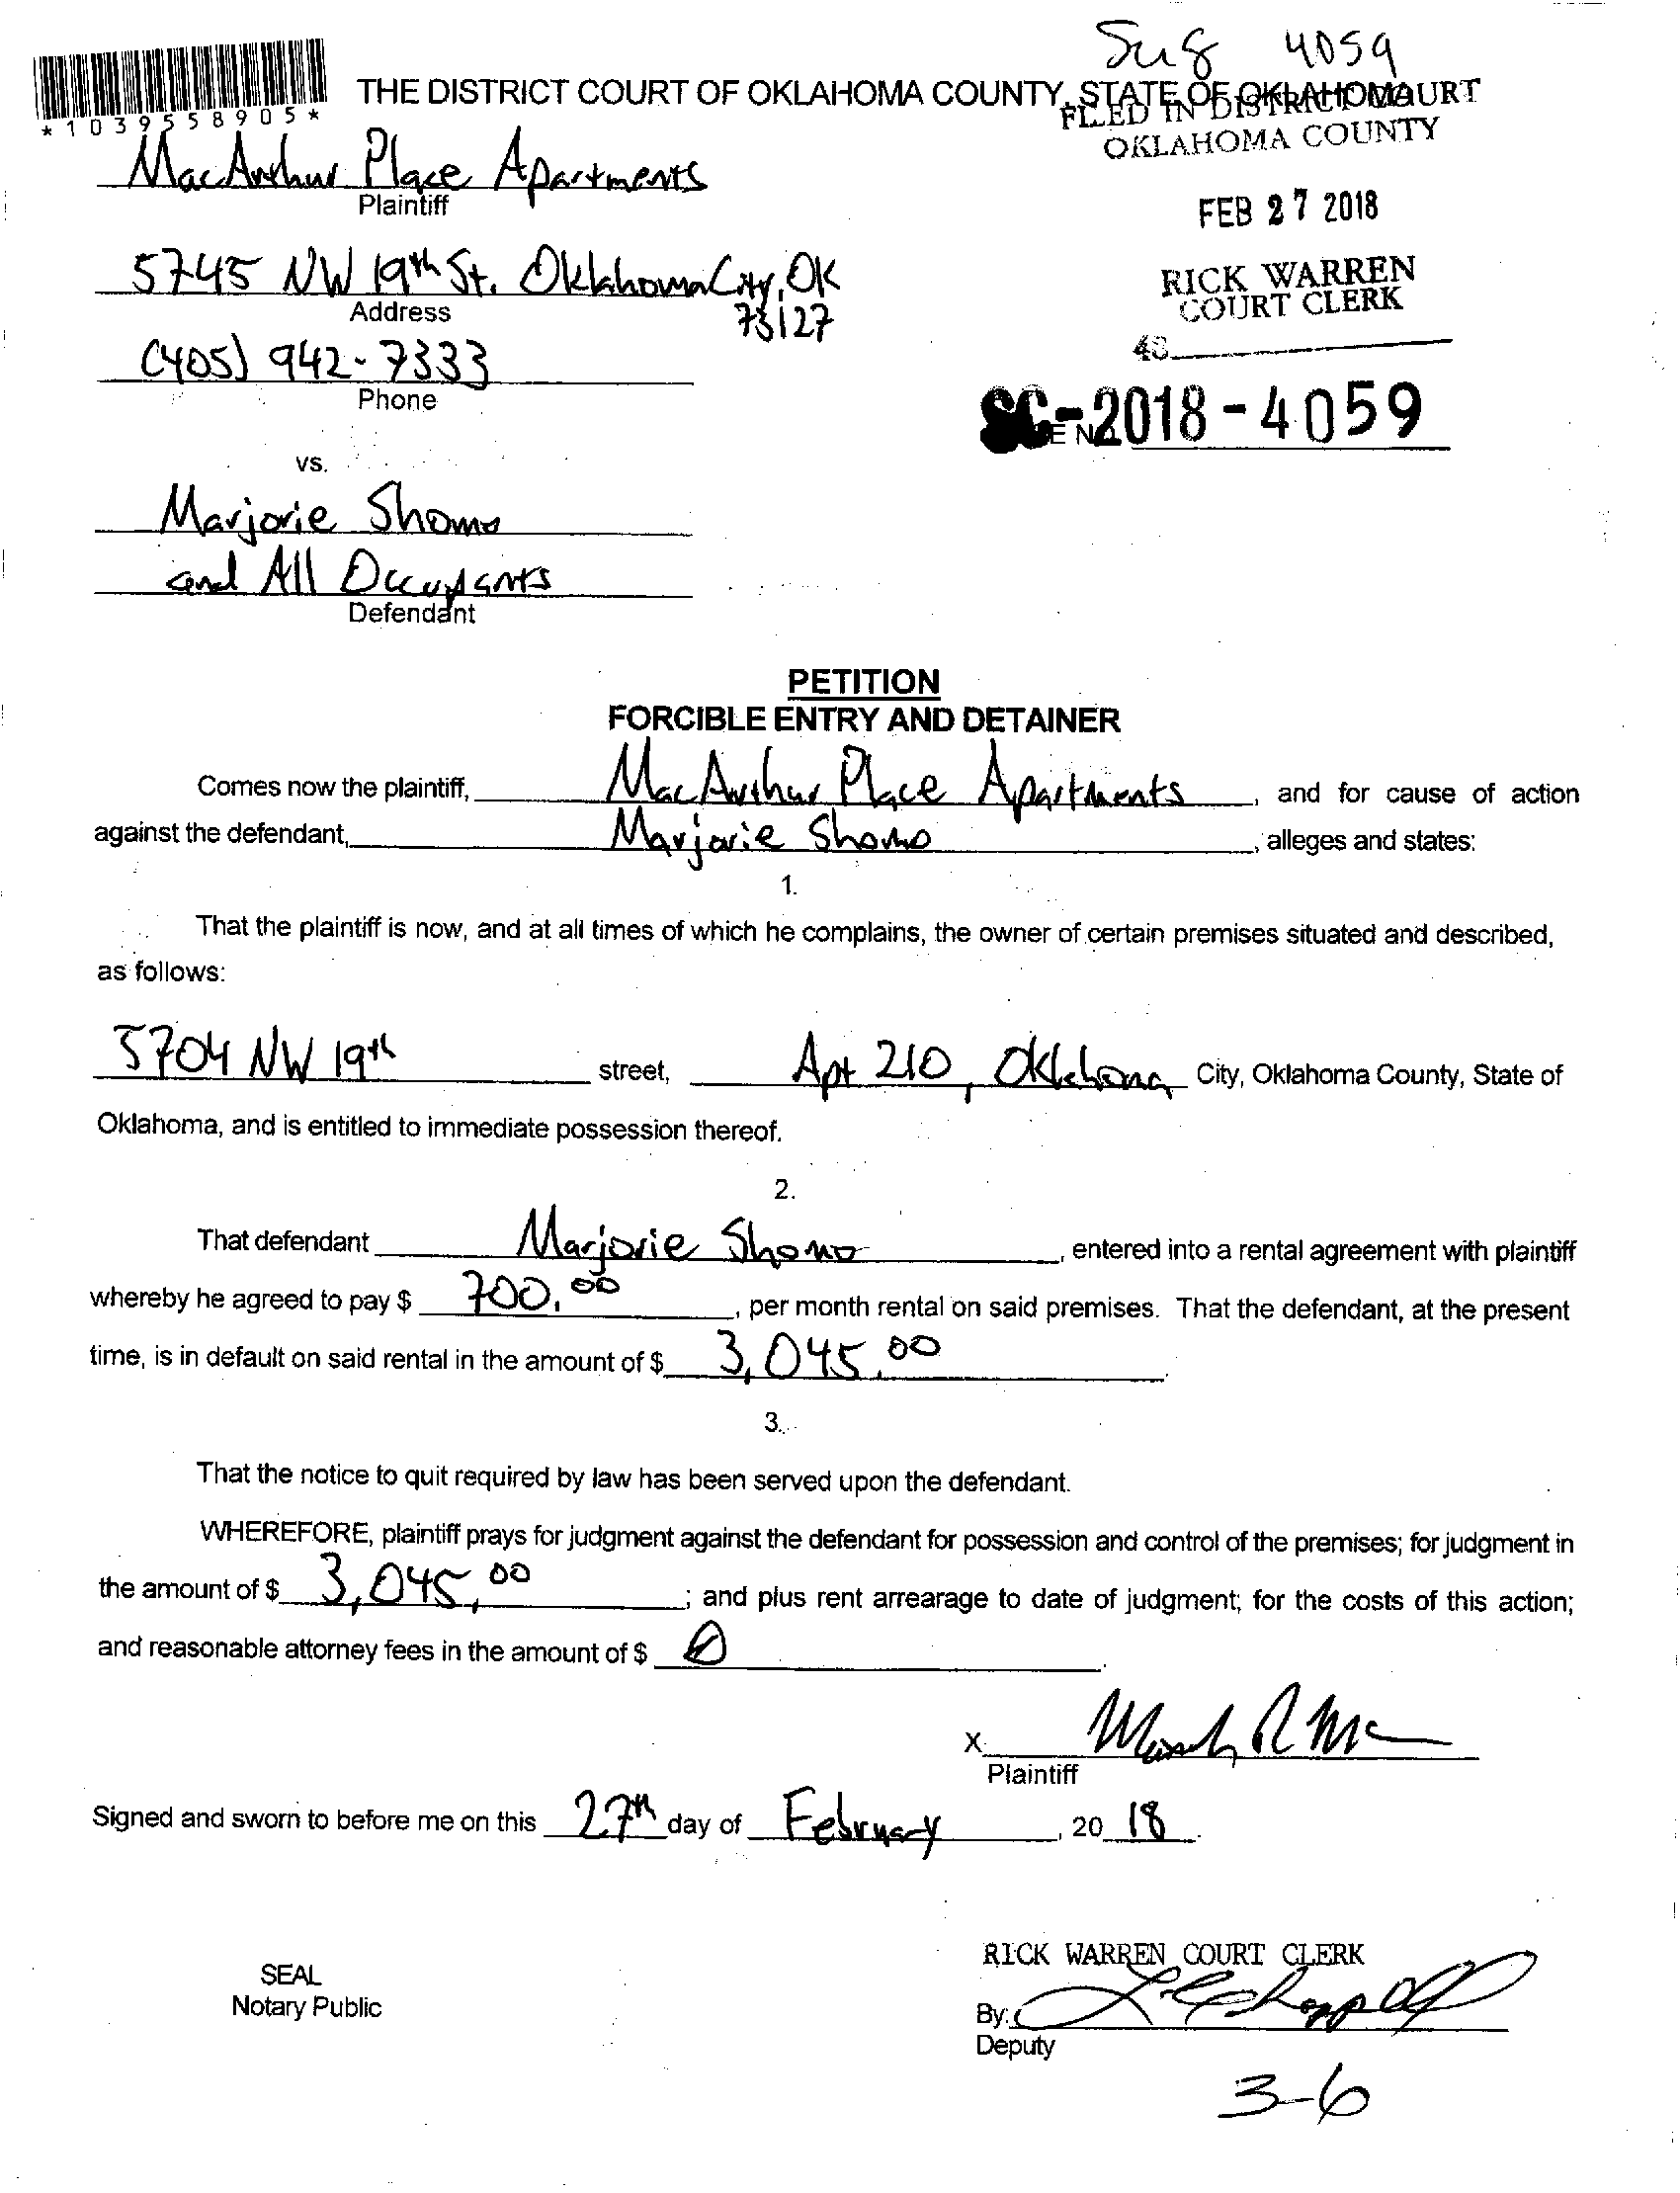 Sug 4059
THE DISTRICT COURT OF OKLAHOMA COUNTY, STATE OF OKLAHOMA
FILED IN DISTRICT COURT
*1039558905*
OKLAHOMA COUNTY
MacArthur Place Apartments
Plaintiff
FEB 27 2018
5745 NW 19th St. Oklahoma City, OK
73127
Address
RICK WARREN
COURT CLERK
(405) 942-7333
Phone
SC-2018-4059
vs.
Marjorie Shomo
and All Occupants
Defendant
PETITION
FORCIBLE ENTRY AND DETAINER
Comes now the plaintiff, MacArthur Place Apartments, and for cause of action
against the defendant, Marjorie Shomo, alleges and states:
1.
That the plaintiff is now, and at all times of which he complains, the owner of certain premises situated and described,
as follows:
5704 NW 19th street, Apt 210, Oklahoma City, Oklahoma County, State of
Oklahoma, and is entitled to immediate possession thereof.
2.
That defendant Marjorie Shomo, entered into a rental agreement with plaintiff
whereby he agreed to pay $ 700.00, per month rental on said premises. That the defendant, at the present
time, is in default on said rental in the amount of $ 3,045.00
3.
That the notice to quit required by law has been served upon the defendant.
WHEREFORE, plaintiff prays for judgment against the defendant for possession and control of the premises; for judgment in
the amount of $ 3,045.00; and plus rent arrearage to date of judgment; for the costs of this action;
and reasonable attorney fees in the amount of $ 0.
X
Plaintiff
Signed and sworn to before me on this 27th day of February, 20 18.
RICK WARREN COURT CLERK
SEAL
Notary Public
By:
Deputy
3-6